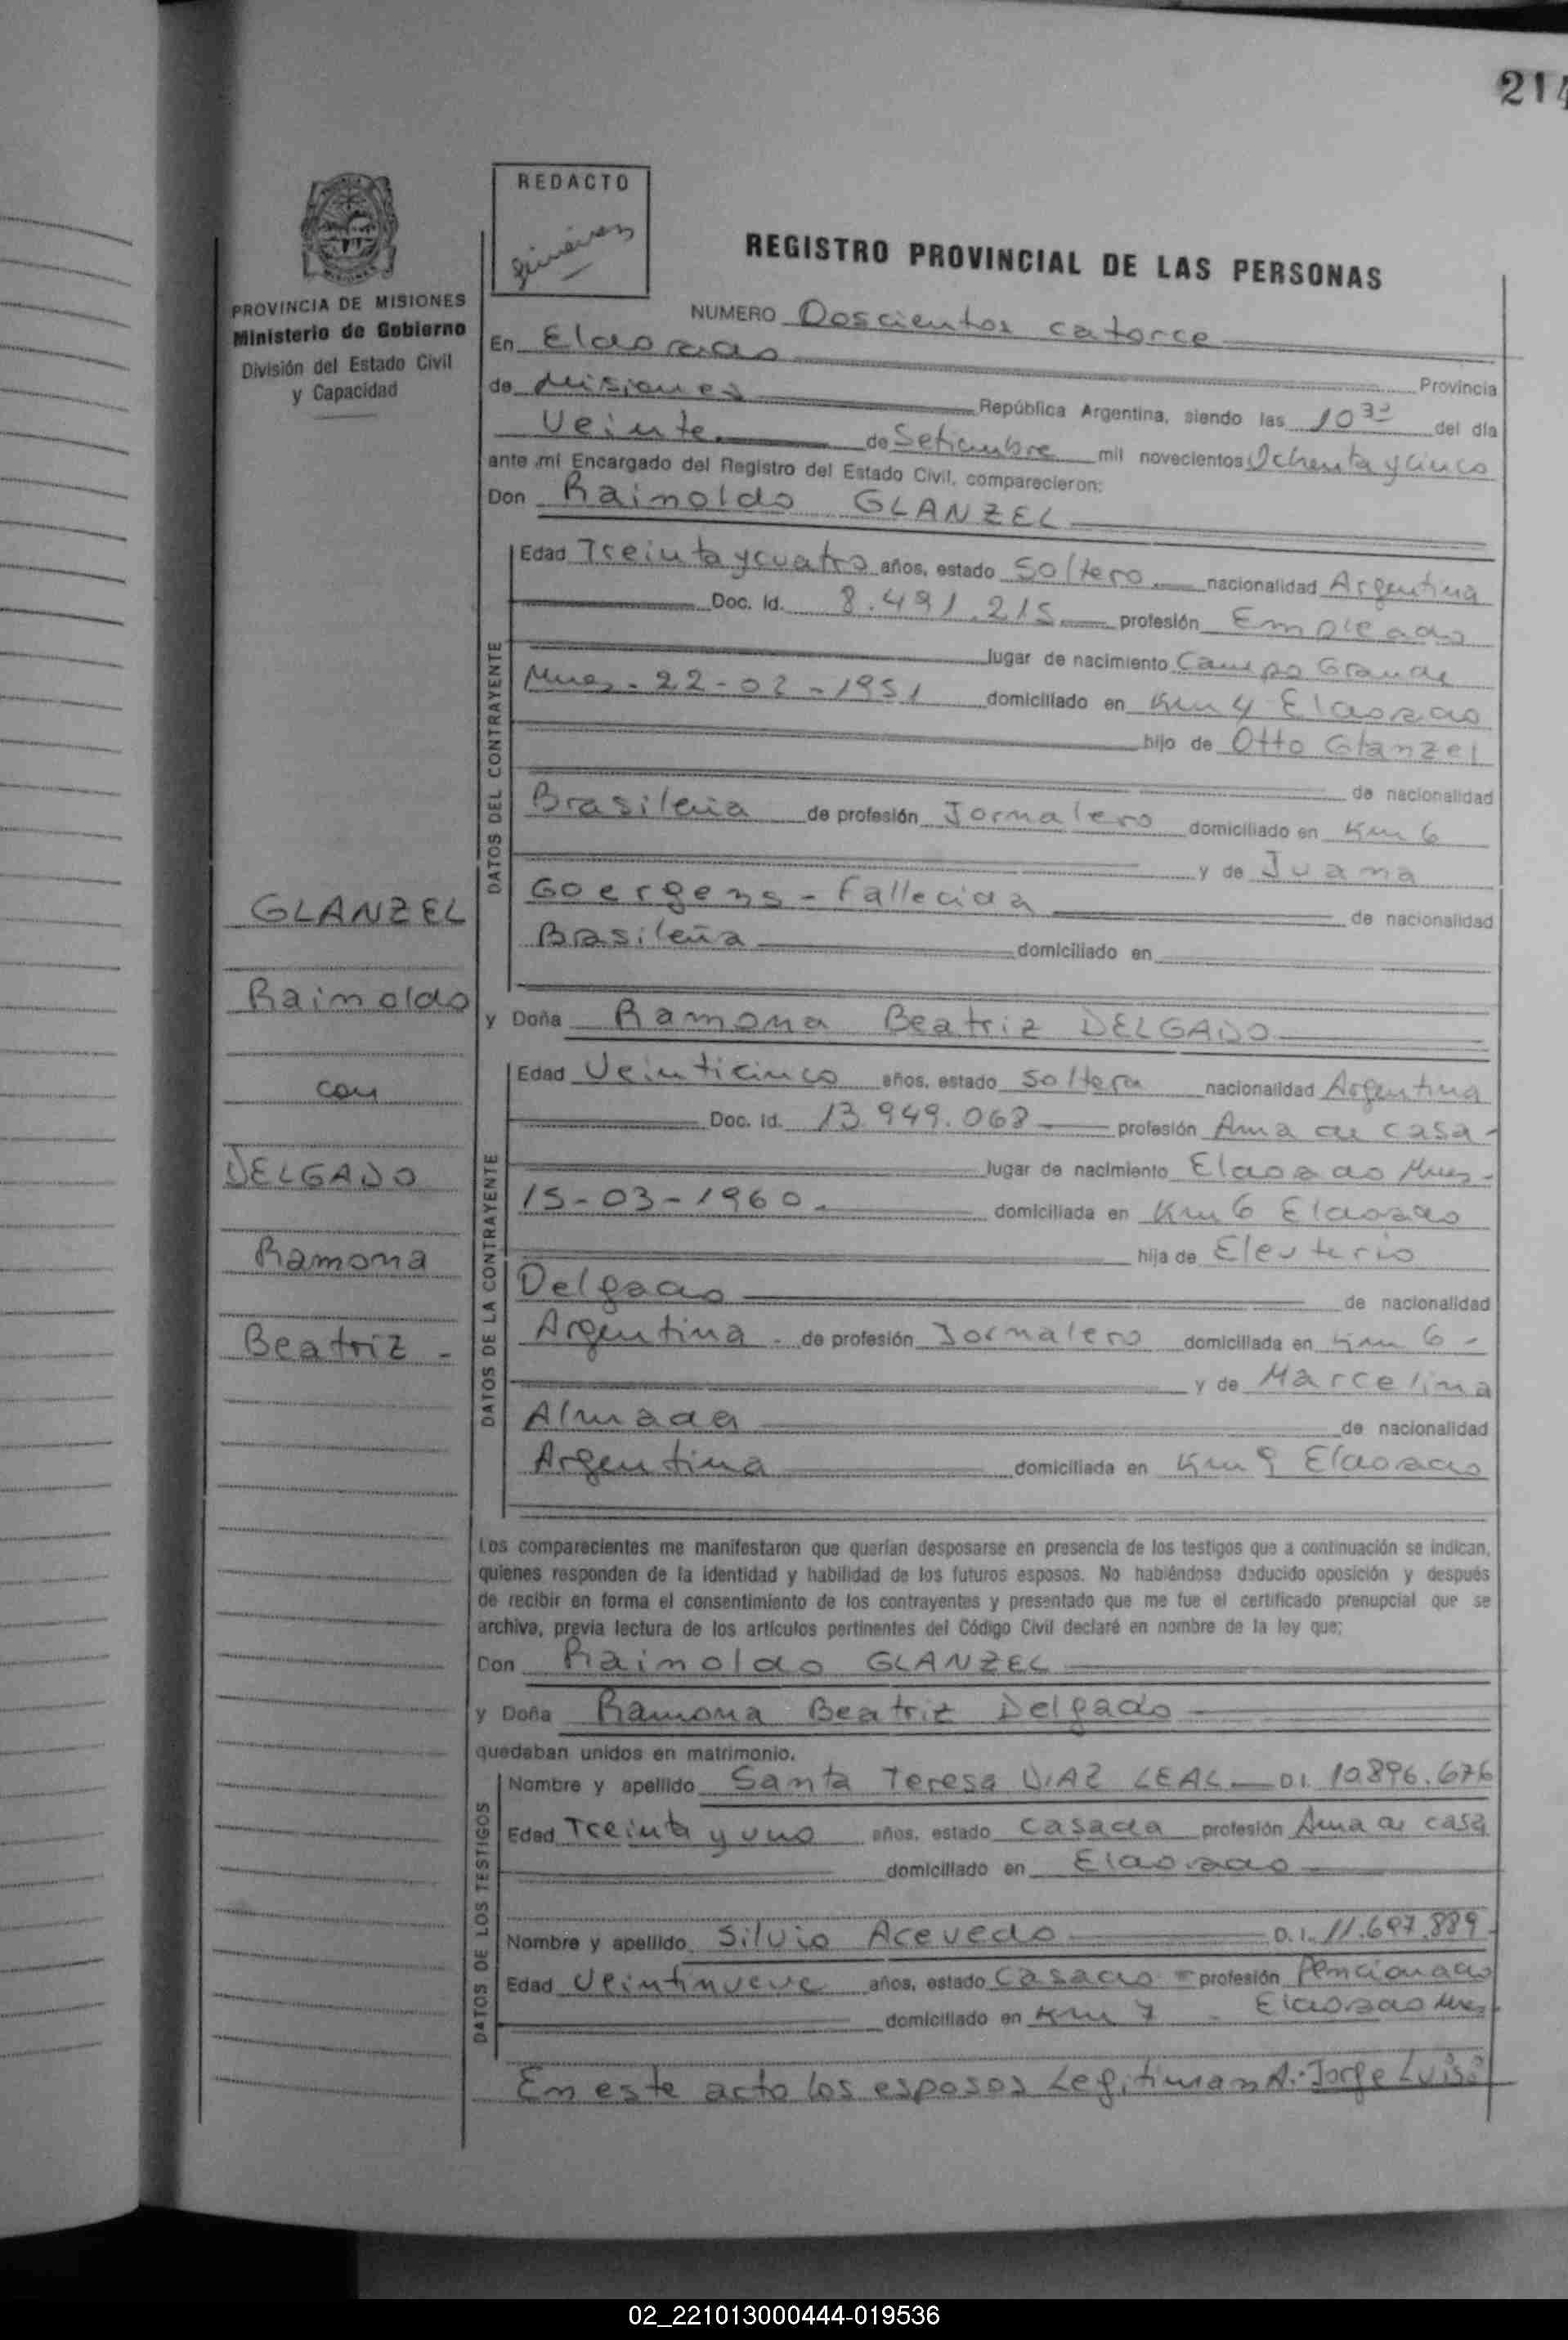 214
REDACTO
REGISTRO PROVINCIAL DE LAS PERSONAS
PROVINCIA DE MISIONES
Ministerio de Gobierno
División del Estado Civil
y Capacidad
NUMERO Doscientos catorce
En Eldorado Provincia
de Misiones República Argentina, siendo las 10 30 del día
Veinte de Setiembre mil novecientos Ochenta y cinco
ante mi Encargado del Registro del Estado Civil, comparecieron:
Don Rainoldo GLANZEL
DATOS DEL CONTRAYENTE
Edad Treinta y cuatro años, estado Soltero nacionalidad Argentina
Doc. Id. 8.491.215 profesión Empleado
lugar de nacimiento Campo Grande
Mnes - 22-02-1951 domiciliado en Km 4 Eldorado
hijo de Otto Glanzel
de nacionalidad
Brasileña de profesión Jornalero domiciliado en Km 6
y de Juana
Goergens - Fallecida de nacionalidad
Brasileña domiciliado en
GLANZEL
Rainoldo
con
DELGADO
Ramona
Beatriz -
y Doña Ramona Beatriz DELGADO
DATOS DE LA CONTRAYENTE
Edad Veinticinco años, estado Soltera nacionalidad Argentina
Doc. Id. 13.949.068 profesión Ama de casa -
lugar de nacimiento Eldorado Mnes -
15-03-1960 - domiciliada en Km 6 Eldorado
hija de Eleuterio
Delgado de nacionalidad
Argentina - de profesión Jornalero domiciliada en Km 6 -
y de Marcelina
Almada de nacionalidad
Argentina domiciliada en Km 9 Eldorado
Los comparecientes me manifestaron que querían desposarse en presencia de los testigos que a continuación se indican,
quienes responden de la identidad y habilidad de los futuros esposos. No habiéndose deducido oposición y después
de recibir en forma el consentimiento de los contrayentes y presentado que me fue el certificado prenupcial que se
archiva, previa lectura de los artículos pertinentes del Código Civil declaré en nombre de la ley que:
Don Rainoldo GLANZEL
y Doña Ramona Beatriz Delgado
quedaban unidos en matrimonio.
DATOS DE LOS TESTIGOS
Nombre y apellido Santa Teresa DIAZ LEAL D.I. 10.896.676
Edad Treinta y uno años, estado Casada profesión Ama de casa
domiciliado en Eldorado
Nombre y apellido Silvio Acevedo D.I. 11.697.889 -
Edad Veintinueve años, estado Casado - profesión Pencionado
domiciliado en Km 7 - Eldorado Mnes -
En este acto los esposos Legitiman A: Jorge Luis:
02_221013000444-019536